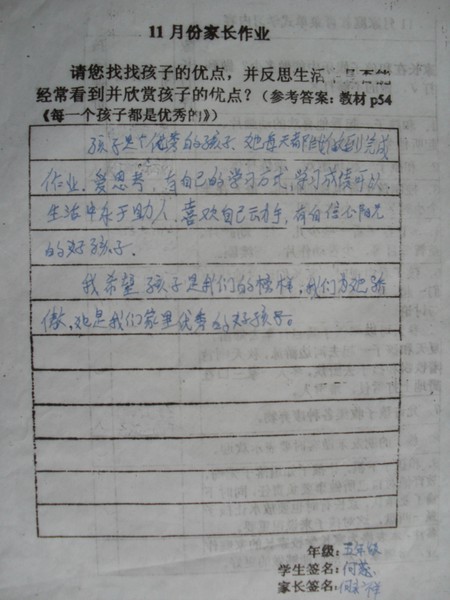 11月份家长作业
请您找找孩子的优点，并反思生活中是否能
经常看到并欣赏孩子的优点？（参考答案：教材p54
《每一个孩子都是优秀的》）
孩子是个优秀的孩子．她每天都能做到完成
作业、爱思考，有自己的学习方式，学习成绩可以，
生活中乐于助人．喜欢自己动手，有自信心阳光
的好孩子．
我希望孩子是我们的榜样，我们为她骄
傲，她是我们家里优秀的好孩子。
年级：五年级
学生签名：何蕊
家长签名：何